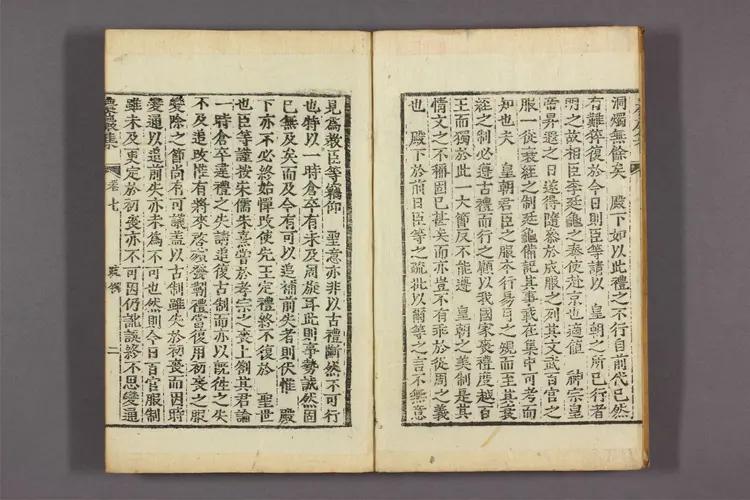 洞燭無餘矣 殿下如以此禮之不行自前代已然
有難猝復於今日則臣等請以 皇朝之所已行者
明之故相臣李廷龜之奉使赴京也適値 神宗皇
帝昇遐之日遂得隨參於成服之列其文武百官之
服一從衰絰之制廷龜備記其事載在集中可考而
知也夫 皇朝君臣之服不行易月之規而至其衰
絰之制必遵古禮而行之顧以我國家喪禮度越百
王而獨於此一大節反不能遵 皇朝之美制是其
情文之不稱固已甚矣而亦豈不有乖於從周之義
也 殿下於前日臣等之疏批以爾等之言不無意
見爲敎臣等竊仰 聖意亦非以古禮斷然不可行
也特以一時倉卒有未及周旋耳此則事勢誠然固
已無及矣而及今有可以追補前失者則伏惟 殿
下亦不必終始憚改使先王定禮終不復於 聖世
也臣等謹按宋儒朱熹嘗於孝宗之喪上劄其君論
一時倉卒違禮之失請追復古制而亦以旣往之失
不及追改惟有將來啓殯發靷禮當復用初喪之服
變除之節尙有可議盖以古制雖失於初喪而因時
變通以追前失亦未爲不可也然則今日百官服制
雖未及更定於初喪亦不可因仍訛誤終不思變通
農巖集 卷七 疏 二